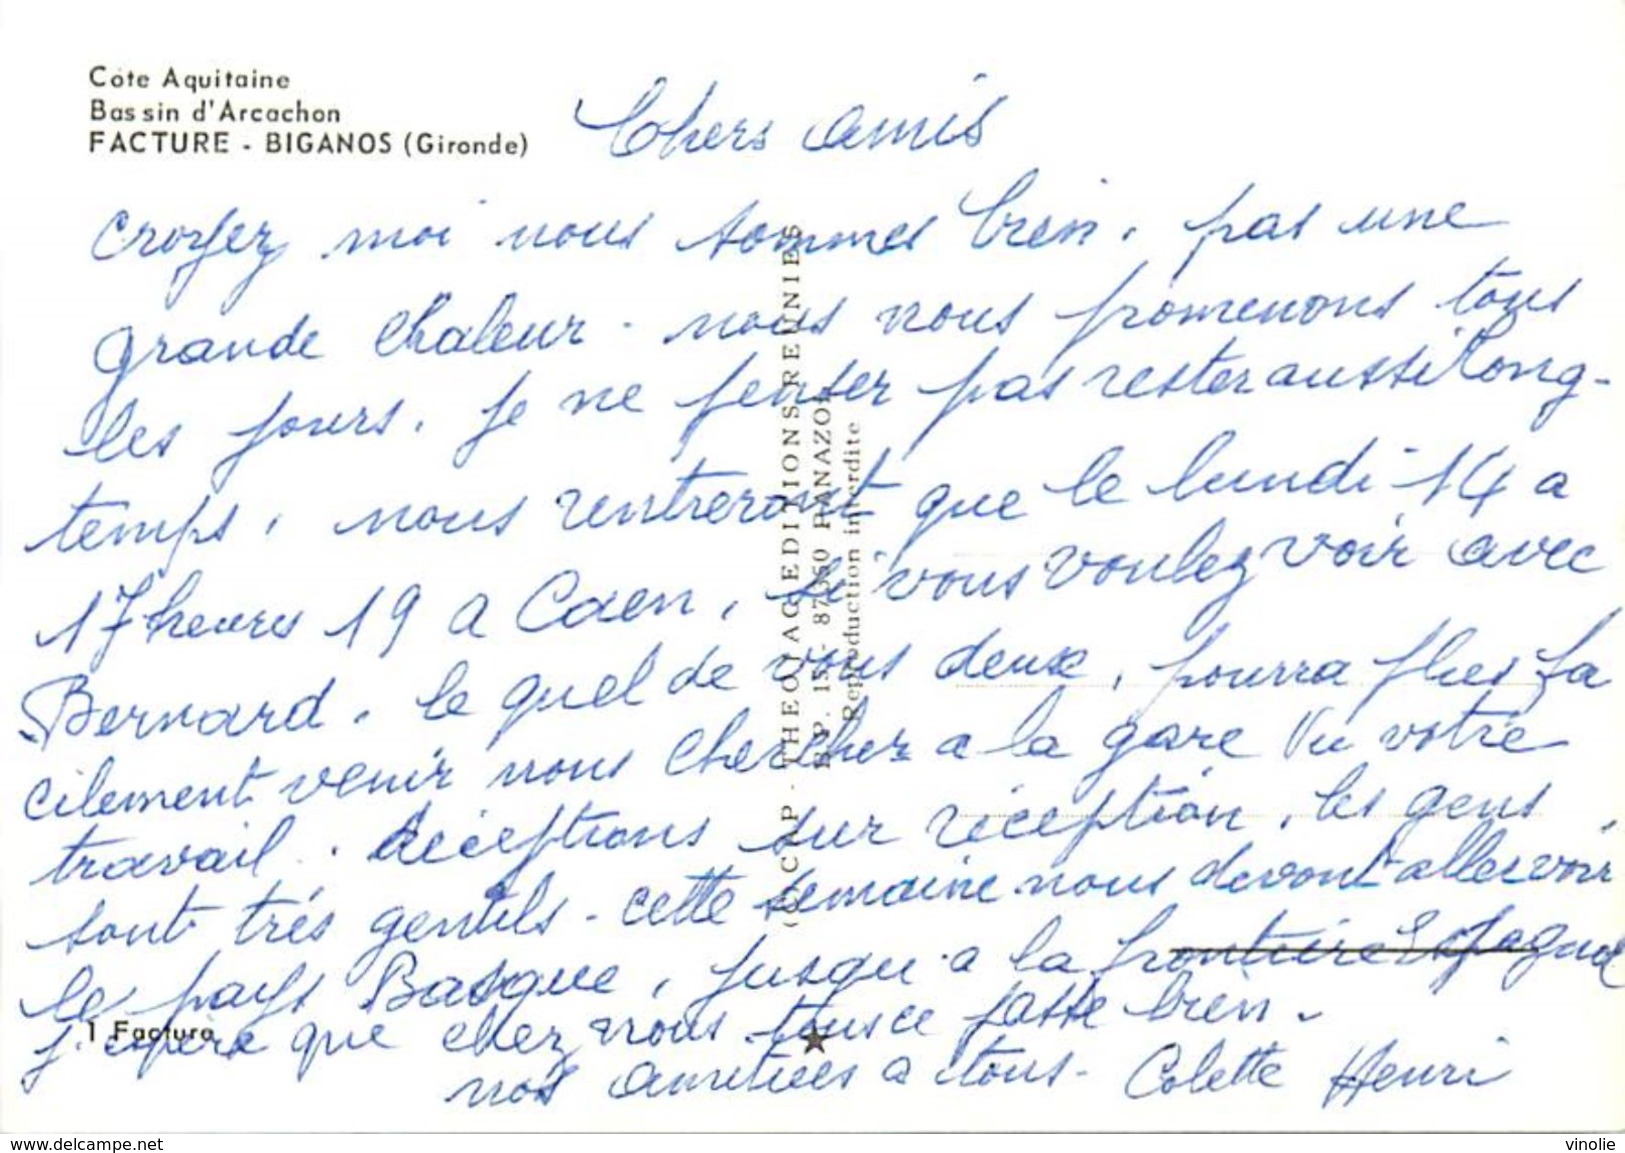 Côte Aquitaine
Bassin d'Arcachon
FACTURE - BIGANOS (Gironde)
Chers amis
croyez moi nous sommes bien. pas une
grande chaleur. nous nous promenons tous
les jours. Je ne penser pas rester aussi long-
temps, nous rentreront que le lundi 14 a
17 heures 19 a Caen, si vous voulez voir avec
Bernard. le quel de vous deux, pourra plus fa
cilement venir nous chercher a la gare Vu votre
travail. Réceptions sur réception, les gens
sont trés gentils - cette semaine nous devont aller voir
le pays Basque, jusqu'a la frontière Espagnol
j'espère que chez vous tous ce passe bien.
nos amitiées a tous - Colette Henri
(C) CAP - THEOJAC EDITIONS REUNIES
B.P. 15 - 87350 PANAZOL
Reproduction interdite
1 Facture
www.delcampe.net
vinolie